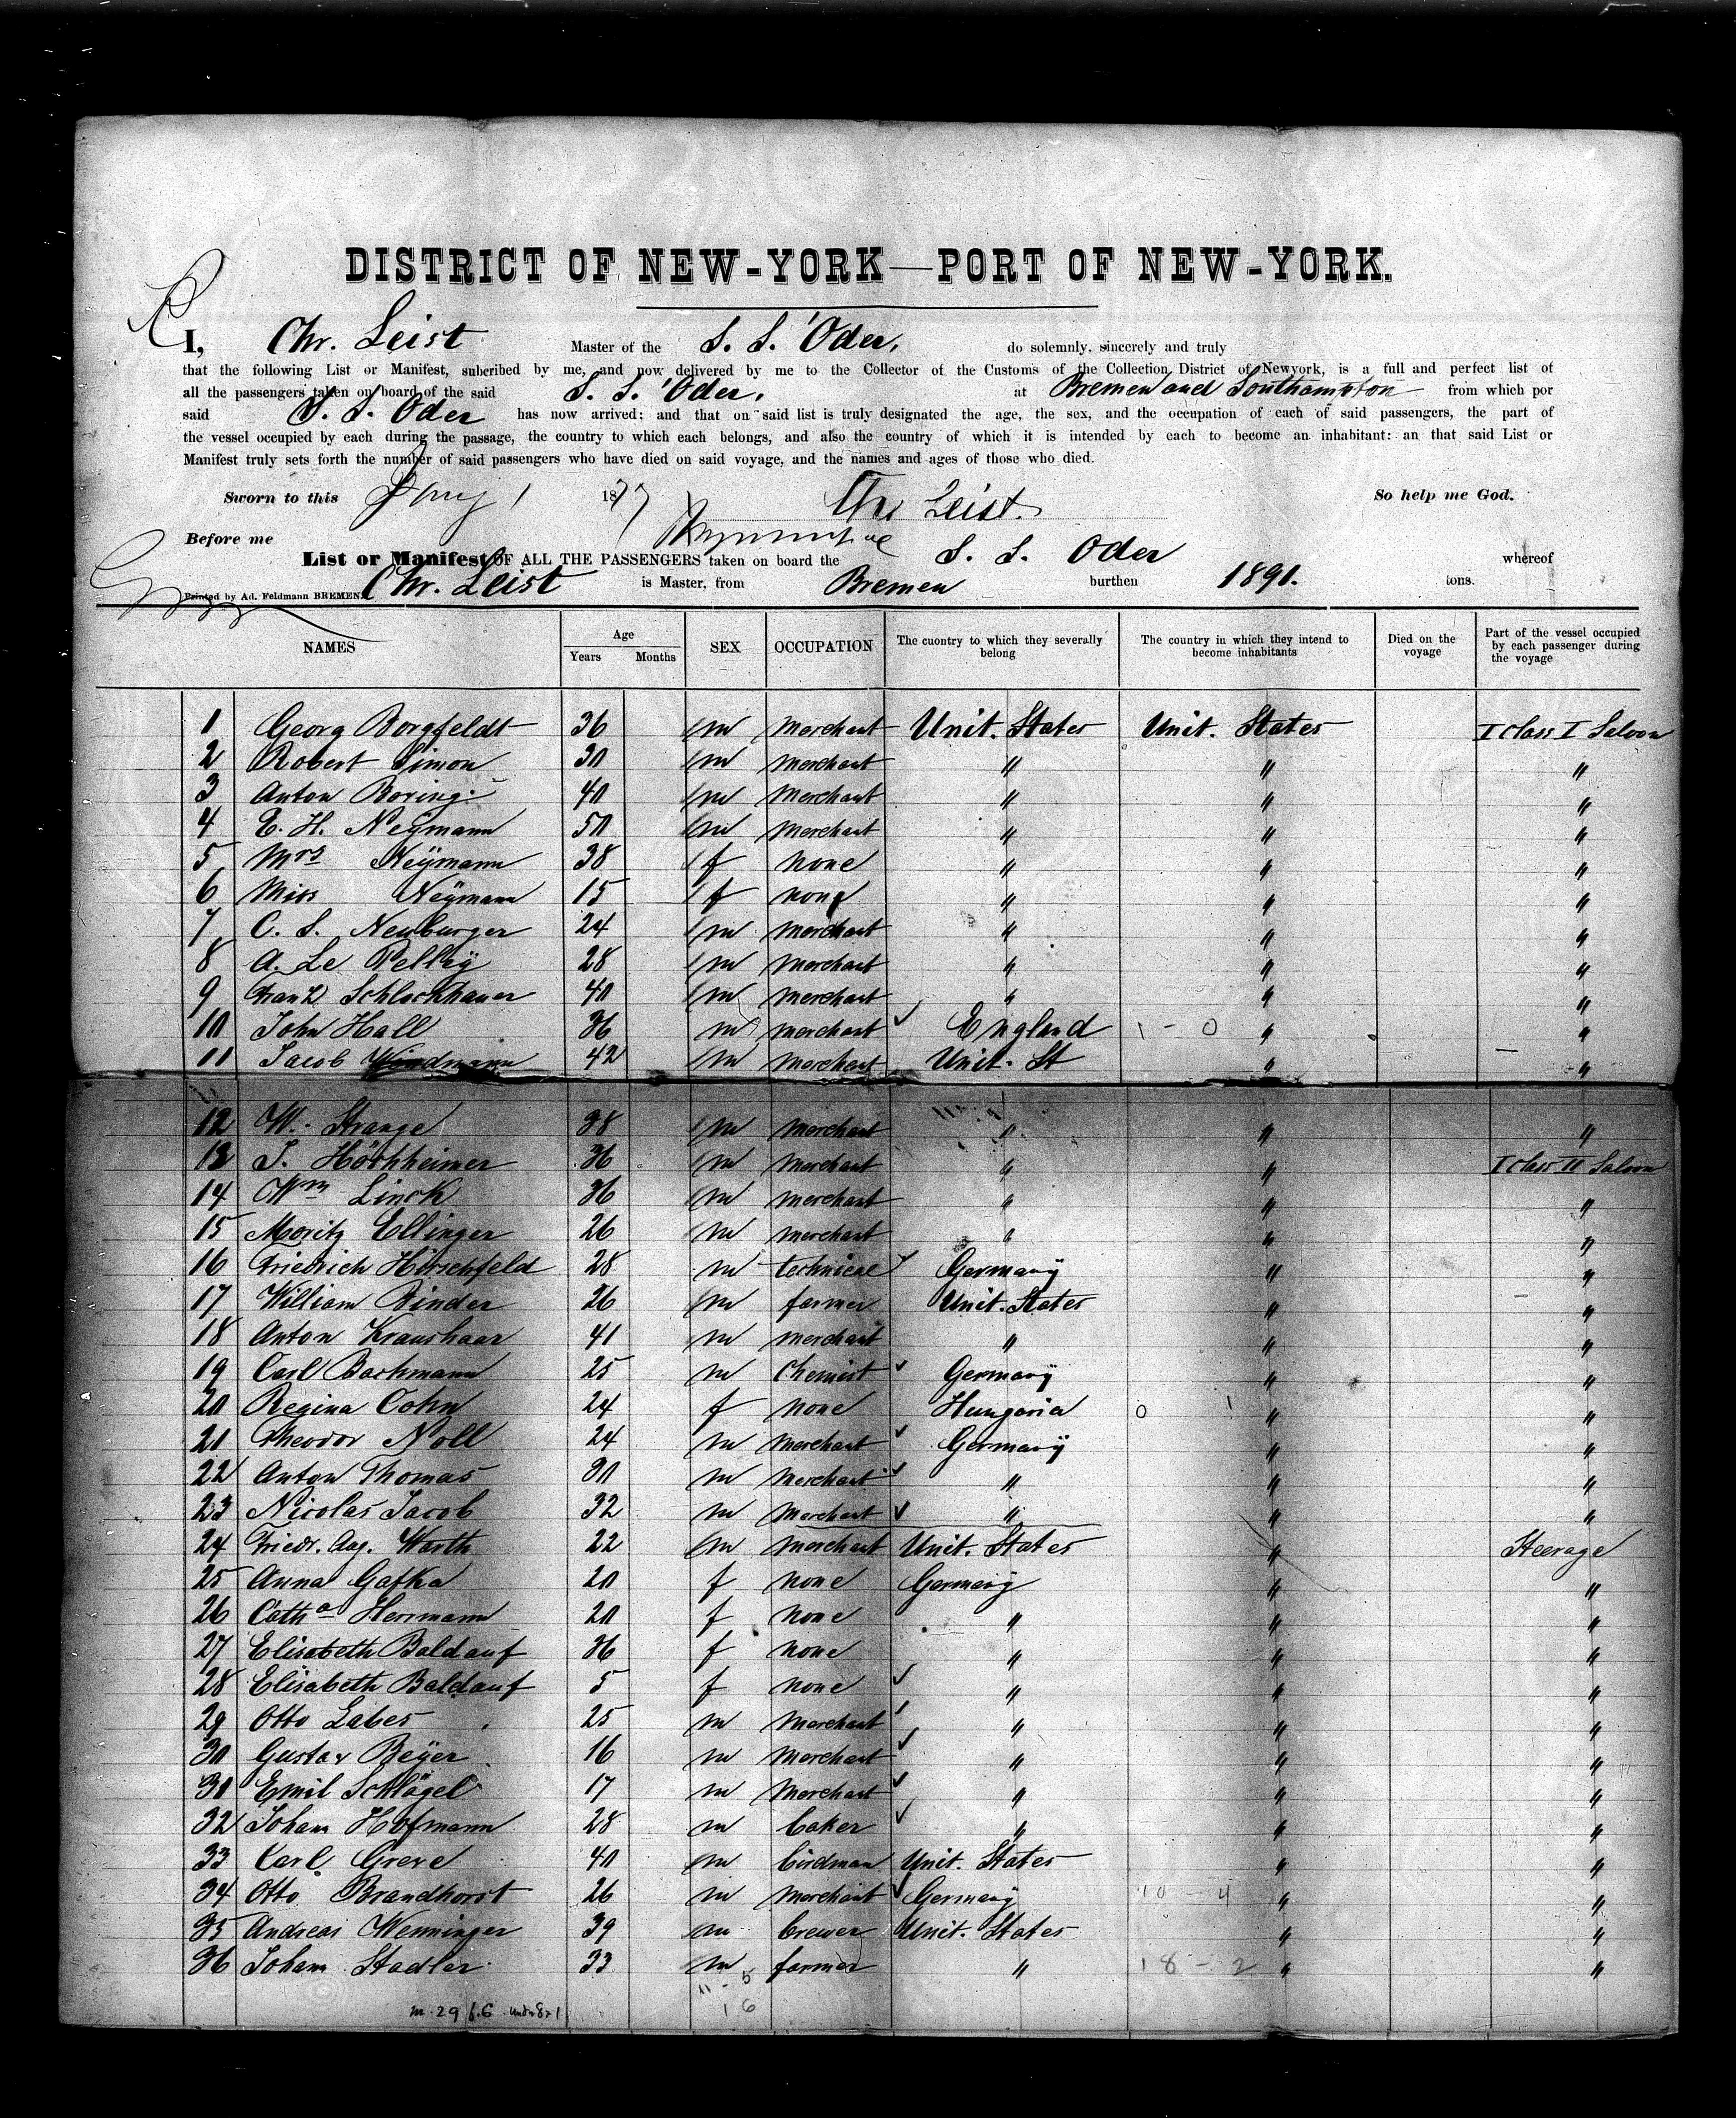 DISTRICT OF NEW-YORK—PORT OF NEW-YORK.
I, Chr. Leist Master of the S. S. 'Oder, do solemnly, sincerely and truly
that the following List or Manifest, subcribed by me, and now delivered by me to the Collector of the Customs of the Collection District of Newyork, is a full and perfect list of
all the passengers taken on board of the said S. S. 'Oder. at Bremen and Southampton from which por
said S. S. Oder has now arrived: and that on said list is truly designated the age, the sex, and the occupation of each of said passengers, the part of
the vessel occupied by each during the passage, the country to which each belongs, and also the country of which it is intended by each to become an inhabitant: an that said List or
Manifest truly sets forth the number of said passengers who have died on said voyage, and the names and ages of those who died.
Sworn to this 1 1877 Chr Leist. So help me God.
Before me
List or Manifest OF ALL THE PASSENGERS taken on board the S. S. Oder whereof
Chr. Leist is Master, from Bremen burthen 1891. tons.
Printed by Ad. Feldmann BREMEN.
NAMES Age Years Months SEX OCCUPATION The cuontry to which they severally belong The country in which they intend to become inhabitants Died on the voyage Part of the vessel occupied by each passenger during the voyage
1 Georg Borgfeldt 36 m merchant Unit. States Unit. States I class I Saloon
2 Robert Simon 30 m merchant " " "
3 Anton Boring 40 m merchant " " "
4 E. H. Neÿmann 50 m merchant " " "
5 Mrs Neÿmann 38 f none " " "
6 Miss Neÿmann 15 f none " " "
7 C. S. Newburger 24 m merchant " " "
8 A. Le Pelleÿ 28 m merchant " " "
9 Franz Schlochhauer 40 m merchant " " "
10 John Hall 36 m merchant England 1 - 0 " "
11 Jacob Windmann 42 m merchant Unit. St " "
12 W. Strange 38 m merchant " " "
13 J. Höchheimer 36 m merchant " " I class II Saloon
14 Wm Linck 36 m merchant " " "
15 Moritz Ellinger 26 m merchant " " "
16 Friedrich Hirschfeld 28 m technical Germanÿ " "
17 William Binder 26 m farmer Unit. States " "
18 Anton Kraushaar 41 m merchant " " "
19 Carl Bachmann 25 m Chemist Germanÿ " "
20 Regina Cohn 24 f none Hungaria 0 1 " "
21 Theodor Noll 24 m merchant Germanÿ " "
22 Anton Thomas 30 m merchant " " "
23 Nicolas Jacob 32 m merchant " " "
24 Friedr. Aug. Warth 22 m merchant Unit. States " Steerage
25 Anna Gafka 20 f none Germanÿ " "
26 Catha Herrmann 20 f none " " "
27 Elisabeth Baldauf 36 f none " " "
28 Elisabeth Baldauf 5 f none " " "
29 Otto Labes 25 m merchant " " "
30 Gustav Beÿer 16 m merchant " " "
31 Emil Schlögel 17 m merchant " " "
32 Johann Hofmann 28 m baker " " "
33 Carl Greve 40 m birdman Unit. States " "
34 Otto Brandhorst 26 m merchant Germanÿ 10 - 4 " "
35 Andreas Wenninger 39 m brewer Unit. States " "
36 Johann Stadler 33 m farmer " 18 - 2 " "
11 - 5
16
m. 29 f. 6